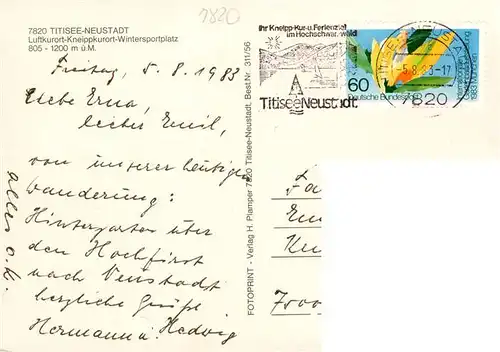 7820
7820 TITISEE-NEUSTADT
Luftkurort-Kneippkurort-Wintersportplatz
805 - 1200 m ü.M.
Freitag, 5.8.1983
Liebe Erna,
lieber Emil,
von unserer heutigen
Wanderung:
Hinterzarten über
den Hochfirst
nach Neustadt
herzliche Grüße
Hermann u. Hedwig
alles o.k.
FOTOPRINT - Verlag H. Plamper 7820 Titisee-Neustadt, Best.Nr. 311/56
Ihr Kneipp-Kur-u. Ferienziel
im Hochschwarzwald
Titisee Neustadt.
5.8.83-17
7820
60
Deutsche Bundespost